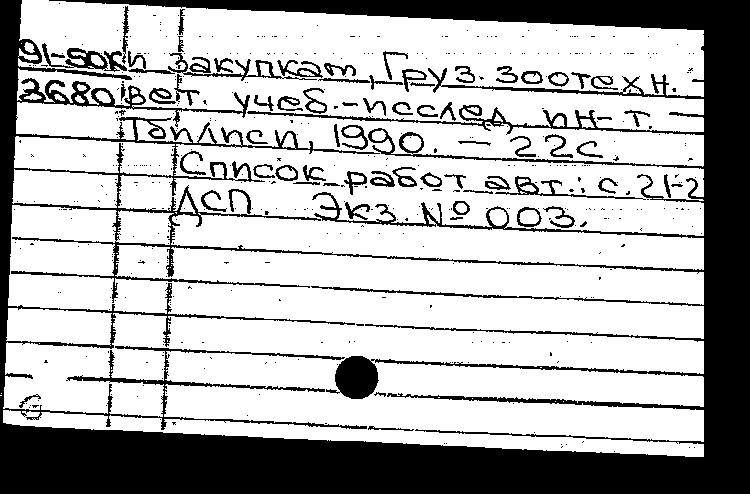 91-50кп закупкам, Груз. зоотехн. -
3680 вет. учеб.-исслед. ин-т. —
Тбилиси, 1990. — 22с.
Список работ авт.: с. 21-2
ДСП. Экз. № 003.